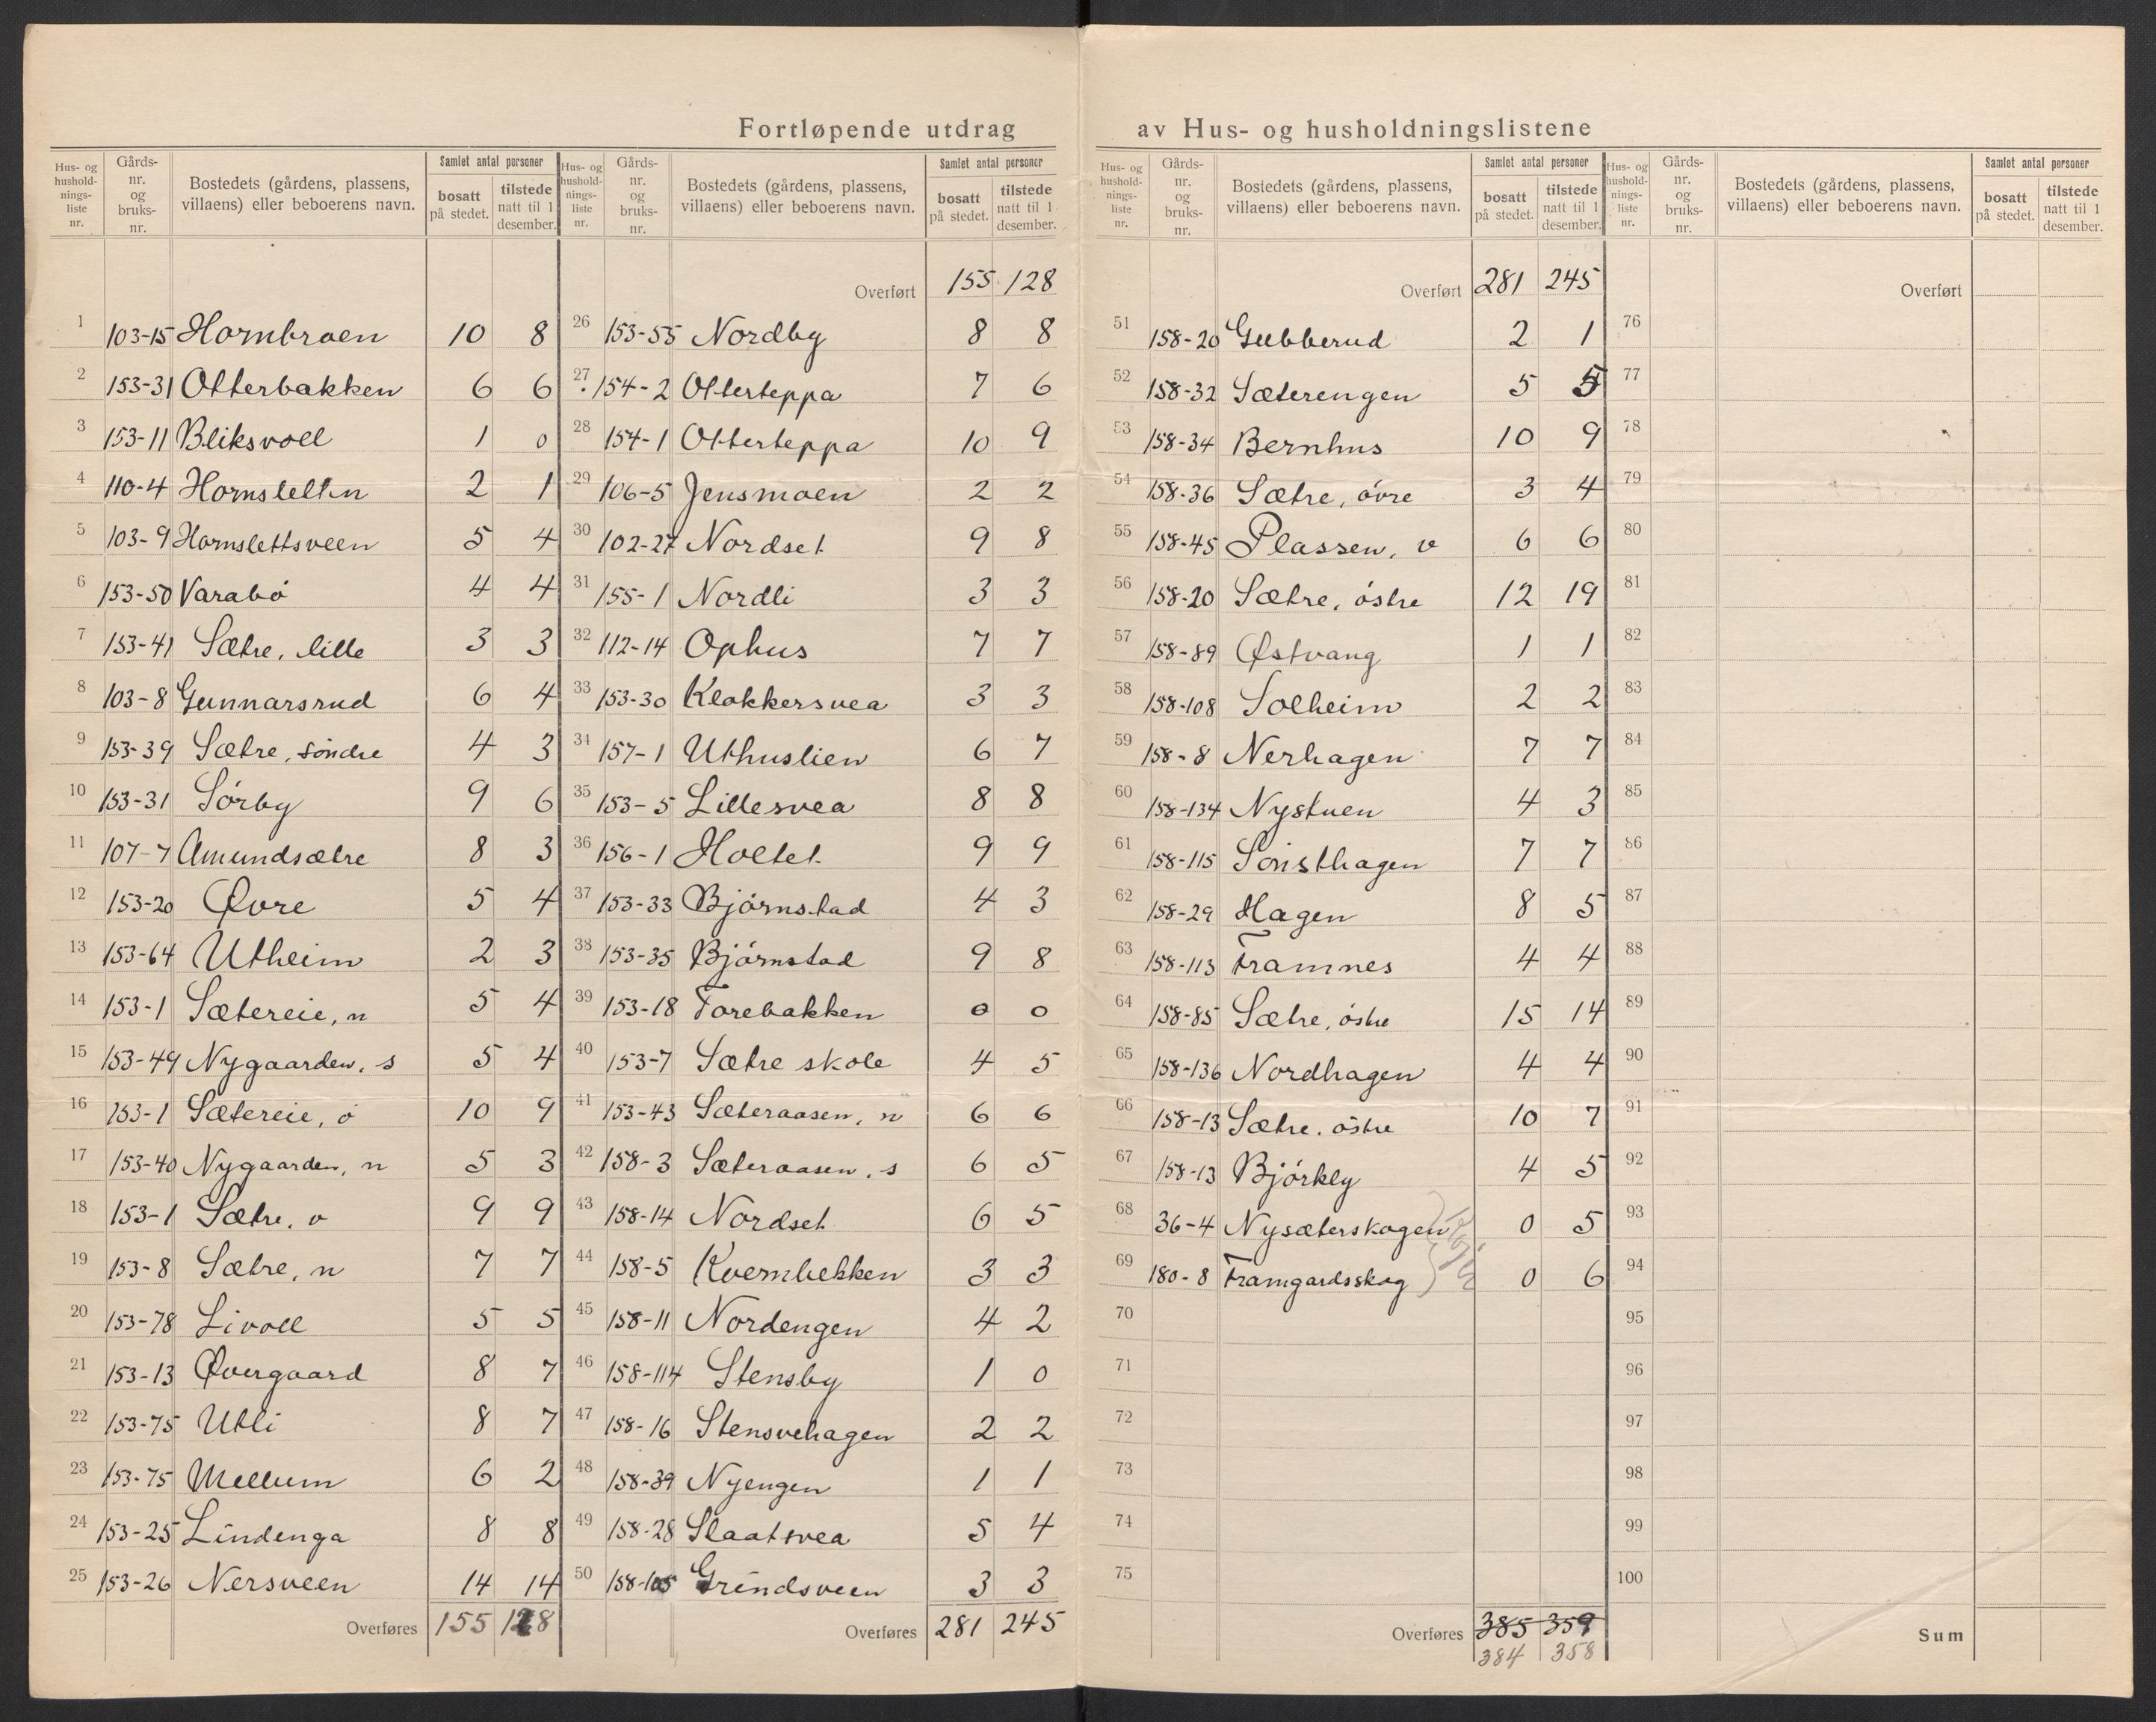 Fortløpende utdrag av Hus- og husholdningslistene
Hus- og husholdnings- liste nr. | Gårds- nr. og bruks- nr. | Bostedets (gårdens, plassens, villaens) eller beboerens navn. | Samlet antal personer | bosatt på stedet. | tilstede natt til 1 desember.
1 103-15 Hornbroen 10 8
2 153-31 Otterbakken 6 6
3 153-11 Bliksvoll 1 0
4 110-4 Hornsletten 2 1
5 103-9 Hornslettsveen 5 4
6 153-50 Varabó 4 4
7 153-41 Sætre, lille 3 3
8 103-8 Gunnarsrud 6 4
9 153-39 Sætre, søndre 4 3
10 153-31 Sórby 9 6
11 107-7 Amundsætre 8 3
12 153-20 Øvre 5 4
13 153-64 Utheim 2 3
14 153-1 Sætereie, n 5 4
15 153-49 Nygaarden, s 5 4
16 153-1 Sætereie, ó 10 9
17 153-40 Nygaarden, n 5 3
18 153-1 Sætre, v 9 9
19 153-8 Sætre, n 7 7
20 153-78 Livoll 5 5
21 153-13 Øvergaard 8 7
22 153-75 Utli 8 7
23 153-75 Mellum 6 2
24 153-25 Lindenga 8 8
25 153-26 Nersveen 14 14
Overføres 155 128
Hus- og husholdnings- liste nr. | Gårds- nr. og bruks- nr. | Bostedets (gårdens, plassens, villaens) eller beboerens navn. | Samlet antal personer | bosatt på stedet. | tilstede natt til 1 desember.
Overført 155 128
26 153-55 Nordby 8 8
27 154-2 Otterteppa 7 6
28 154-1 Otterteppa 10 9
29 106-5 Jensmoen 2 2
30 102-27 Nordset 9 8
31 155-1 Nordli 3 3
32 112-14 Ophus 7 7
33 153-30 Klokkersvea 3 3
34 157-1 Uthuslien 6 7
35 153-5 Lillesvea 8 8
36 156-1 Holtet 9 9
37 153-33 Bjórnstad 4 3
38 153-35 Bjórnstad 9 8
39 153-18 Torebakken 0 0
40 153-7 Sætre skole 4 5
41 153-43 Sæteraasen, n 6 6
42 158-3 Sæteraasen, s 6 5
43 158-14 Nordset 6 5
44 158-5 Kvernbekken 3 3
45 158-11 Nordengen 4 2
46 158-114 Stensby 1 0
47 158-16 Stensvehagen 2 2
48 158-39 Nyengen 1 1
49 158-28 Slaatsvea 5 4
50 158-105 Grindsveen 3 3
Overføres 281 245
Hus- og husholdnings- liste nr. | Gårds- nr. og bruks- nr. | Bostedets (gårdens, plassens, villaens) eller beboerens navn. | Samlet antal personer | bosatt på stedet. | tilstede natt til 1 desember.
Overført 281 245
51 158-20 Gubberud 2 1
52 158-32 Sæterengen 5 5
53 158-34 Bernhus 10 9
54 158-36 Sætre, óvre 3 4
55 158-45 Plassen, v 6 6
56 158-20 Sætre, óstre 12 19
57 158-89 Østvang 1 1
58 158-108 Solheim 2 2
59 158-8 Nerhagen 7 7
60 158-134 Nystuen 4 3
61 158-115 7 7
62 158-29 Hagen 8 5
63 158-113 Framnes 4 4
64 158-85 Sætre, óstre 15 14
65 158-136 Nordhagen 4 4
66 158-13 Sætre, óstre 10 7
67 158-13 Bjórkly 4 5
68 36-4 Nysæterskogen 0 5
69 180-8 Framgardsskog 0 6
70
71
72
73
74
75
Overføres 385 359
384 358
Hus- og husholdnings- liste nr. | Gårds- nr. og bruks- nr. | Bostedets (gårdens, plassens, villaens) eller beboerens navn. | Samlet antal personer | bosatt på stedet. | tilstede natt til 1 desember.
Overført
76
77
78
79
80
81
82
83
84
85
86
87
88
89
90
91
92
93
94
95
96
97
98
99
100
Sum